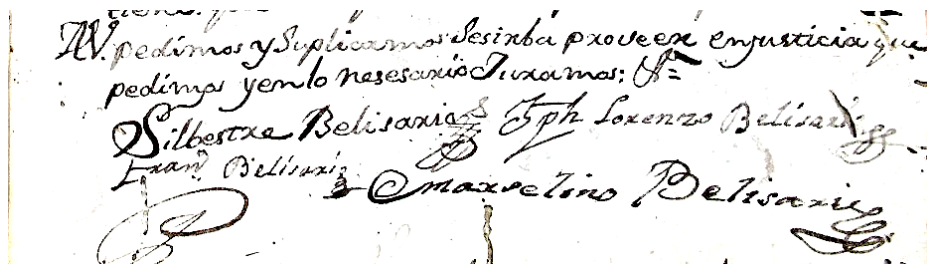 AV. pedimos y Suplicamos Se sirba proveer en justicia que
pedimos y en lo nesesario Juramos: &=
Silbestre Belisario Jph Lorenzo Belisario
Fran.co Belisario
Marselino Belisario